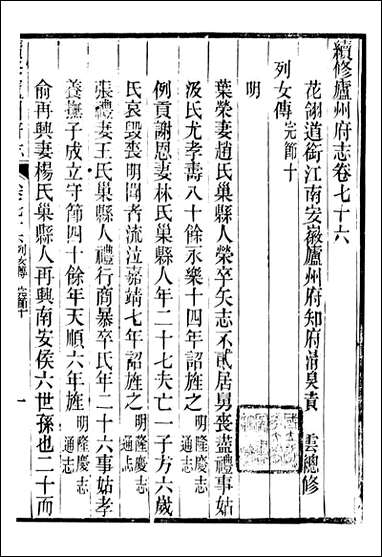 續修廬州府志卷七十六
花翎道銜江南安徽廬州府知府清臭黃　雲總修
列女傳完節十
明
葉榮妻趙氏巢縣人榮卒矢志不貳居舅喪盡禮事姑
汲氏尤孝壽八十餘永樂十四年詔旌之明隆慶志通志
例貢謝恩妻林氏巢縣人年二十七夫亡一子方六歲
氏哀毀喪明聞者流泣嘉靖七年詔旌之明隆慶志通志
張禮妻王氏巢縣人禮行商暴卒氏年二十六事姑孝
養撫子成立守節四十餘年天順六年旌明隆慶志通志
俞再興妻楊氏巢縣人再興南安侯六世孫也二十而
列女傳 完節十
一